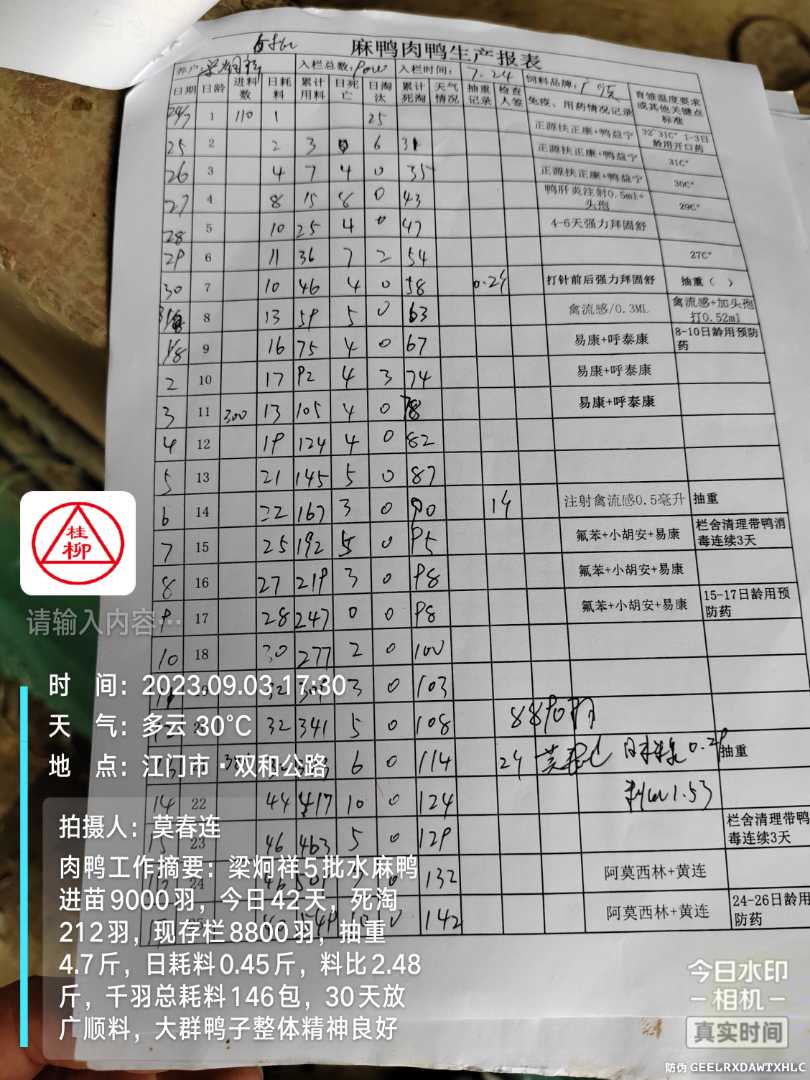 麻鸭肉鸭生产报表
养户: 入栏总数: 9000 入栏时间: 7.24 饲料品牌: 广顺
日期 日龄 进料数 日耗料 累计用料 日死亡 日淘汰 累计死淘 天气情况 抽重记录 检查人签 免疫、用药情况记录 育雏温度要求或其他关键点标准
24/7 1 110 1 25 正源扶正康+鸭益宁 32°31C° 1-3日龄用开口药
25 2 2 3 0 6 31 正源扶正康+鸭益宁 31C°
26 3 4 7 4 0 35 正源扶正康+鸭益宁 30C°
27 4 8 15 8 0 43 鸭肝炎注射0.5ml+头孢 29C°
28 5 10 25 4 0 47 4-6天强力拜固舒
29 6 11 36 7 2 54 27C°
30 7 10 46 4 0 58 0.29 打针前后强力拜固舒 抽重（ ）
8 13 59 5 0 63 禽流感/0.3ML 禽流感+加头孢打0.52ml
1/8 9 16 75 4 0 67 易康+呼泰康 8-10日龄用预防药
2 10 17 92 4 3 74 易康+呼泰康
3 11 300 13 105 4 0 78 易康+呼泰康
4 12 19 124 4 0 82
5 13 21 145 5 0 87
6 14 22 167 3 0 90 注射禽流感0.5毫升 抽重
7 15 25 192 5 0 95 氟苯+小胡安+易康 栏舍清理带鸭消毒连续3天
8 16 27 219 3 0 98 氟苯+小胡安+易康
9 17 28 247 0 0 98 氟苯+小胡安+易康 15-17日龄用预防药
10 18 30 277 2 0 100
32 3 0 103
32 341 5 0 108
6 0 114 抽重
14 22 44 417 10 0 124 1.53
15 23 46 463 5 0 129 栏舍清理带鸭消毒连续3天
24 132 阿莫西林+黄连
0 142 阿莫西林+黄连 24-26日龄用预防药
桂柳
请输入内容…
时 间：2023.09.03 17:30
天 气：多云 30℃
地 点：江门市·双和公路
拍摄人：莫春连
肉鸭工作摘要：梁炯祥5批水麻鸭
进苗9000羽，今日42天，死淘
212羽，现存栏8800羽，抽重
4.7斤，日耗料0.45斤，料比2.48
斤，千羽总耗料146包，30天放
广顺料，大群鸭子整体精神良好
今日水印
相机
真实时间
防伪 GEELRXDAWTXHLC